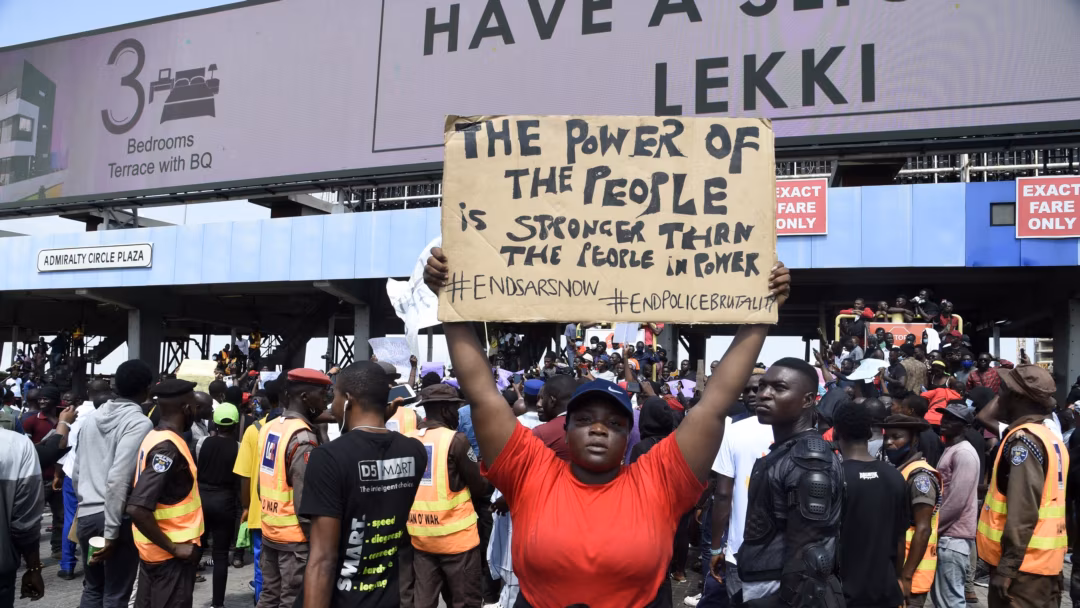 HAVE A
LEKKI
3
Bedrooms
Terrace with BQ
ADMIRALTY CIRCLE PLAZA
EXACT
FARE
ONLY
EXACT
FARE
ONLY
THE POWER OF
THE PEOPLE
is STRONGER THAN
THE PEOPLE in POWER
#ENDSARSNOW #ENDPOLICEBRUTALITY
D5 MART
The intelligent choice
SMART
- speed